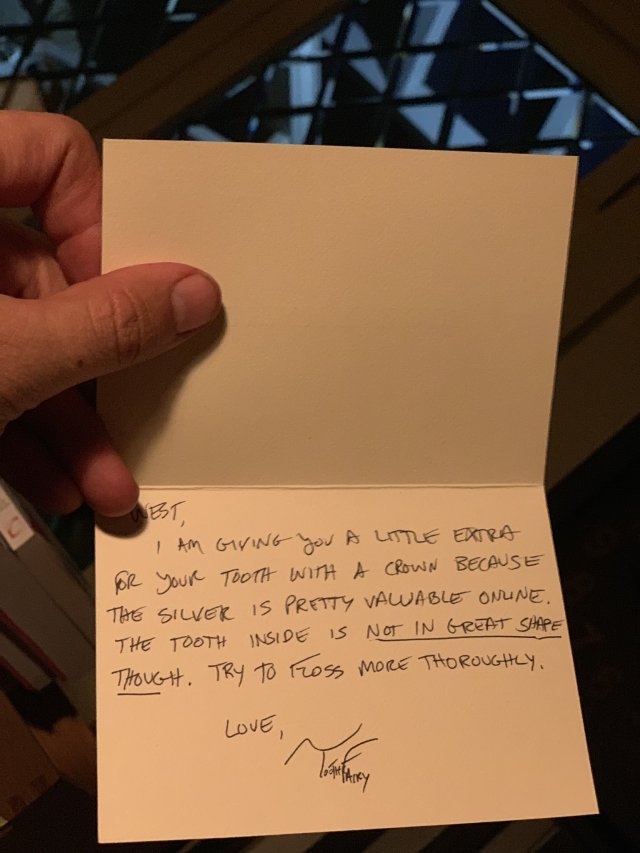 WEST,
I AM GIVING YOU A LITTLE EXTRA
FOR YOUR TOOTH WITH A CROWN BECAUSE
THE SILVER IS PRETTY VALUABLE ONLINE.
THE TOOTH INSIDE IS NOT IN GREAT SHAPE
THOUGH. TRY TO FLOSS MORE THOROUGHLY.
LOVE,
TOOTH FAIRY